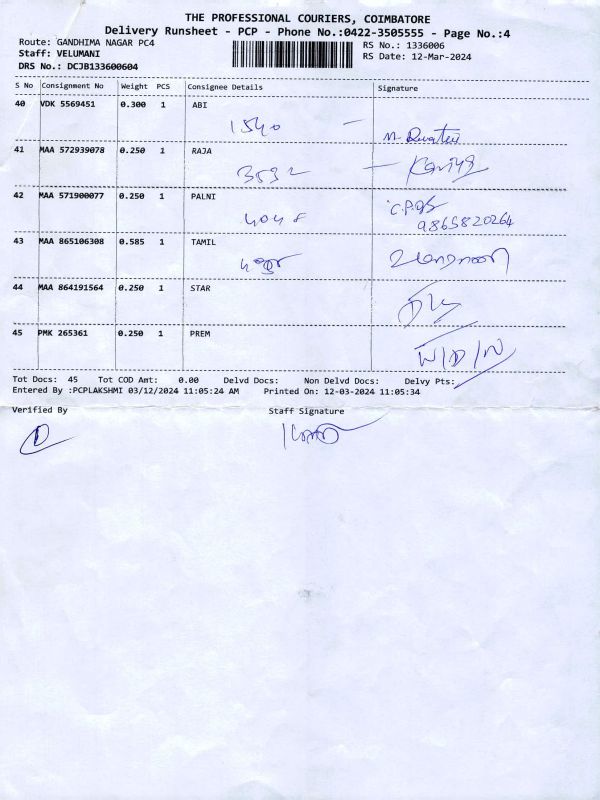 THE PROFESSIONAL COURIERS, COIMBATORE
Delivery Runsheet - PCP - Phone No.:0422-3505555 - Page No.:4
Route: GANDHIMA NAGAR PC4
RS No.: 1336006
Staff: VELUMANI
RS Date: 12-Mar-2024
DRS No.: DCJB133600604
S No Consignment No Weight PCS Consignee Details Signature
40 VDK 5569451 0.300 1 ABI
1540
41 MAA 572939078 0.250 1 RAJA
42 MAA 571900077 0.250 1 PALNI
4048
9865820264
43 MAA 865106308 0.585 1 TAMIL
44 MAA 864191564 0.250 1 STAR
45 PMK 265361 0.250 1 PREM
W/D/N
Tot Docs: 45 Tot COD Amt: 0.00 Delvd Docs: Non Delvd Docs: Delvy Pts:
Entered By :PCPLAKSHMI 03/12/2024 11:05:24 AM Printed On: 12-03-2024 11:05:34
Verified By Staff Signature